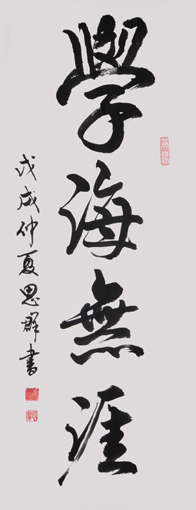 學海無涯
戊戌仲夏思群書